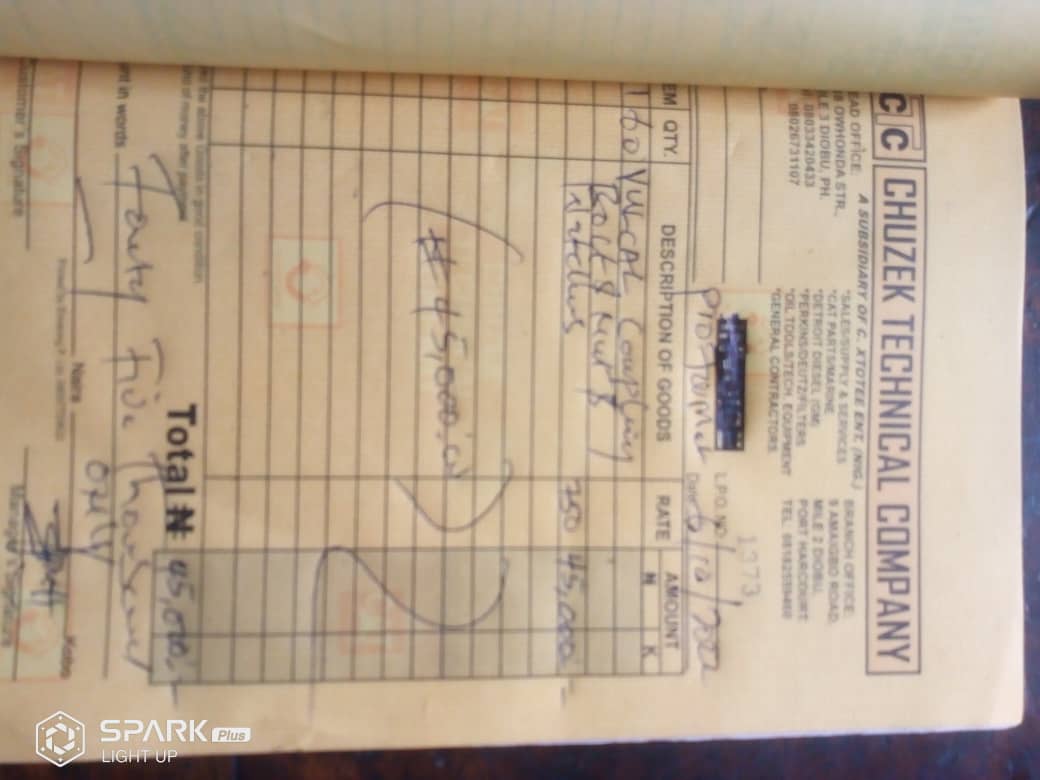 CHUZEK TECHNICAL COMPANY
A SUBSIDIARY OF C. XTOTEE ENT. (NIG.)
EAD OFFICE:
OWHONDA STR.,
LE 3 DIOBU, PH.
08033420433
08026731107
*SALES/SUPPLY & SERVICES
*CAT PARTS/MARINE
*DETROIT DIESEL (GM)
*PERKINS/DEUTZ/FILTERS
*OIL TOOLS/TECH. EQUIPMENT
*GENERAL CONTRACTORS
BRANCH OFFICE:
9 AMAIGBO ROAD,
MILE 2 DIOBU,
PORT HARCOURT
TEL.
1373
L.P.O. NO:
Date 6/10/
EM QTY. DESCRIPTION OF GOODS RATE AMOUNT
₦ K
1 60 VULCAL Coupling
Bolt & Nut &
750 45,000 -
₦ 45,000.00
Total ₦ 45,000 -
the above Goods in good condition
of money after payment
nt in words Fourty Five thousand
Naira only Kobo
ustomer's Signature
Manager's Signature
SPARK Plus
LIGHT UP